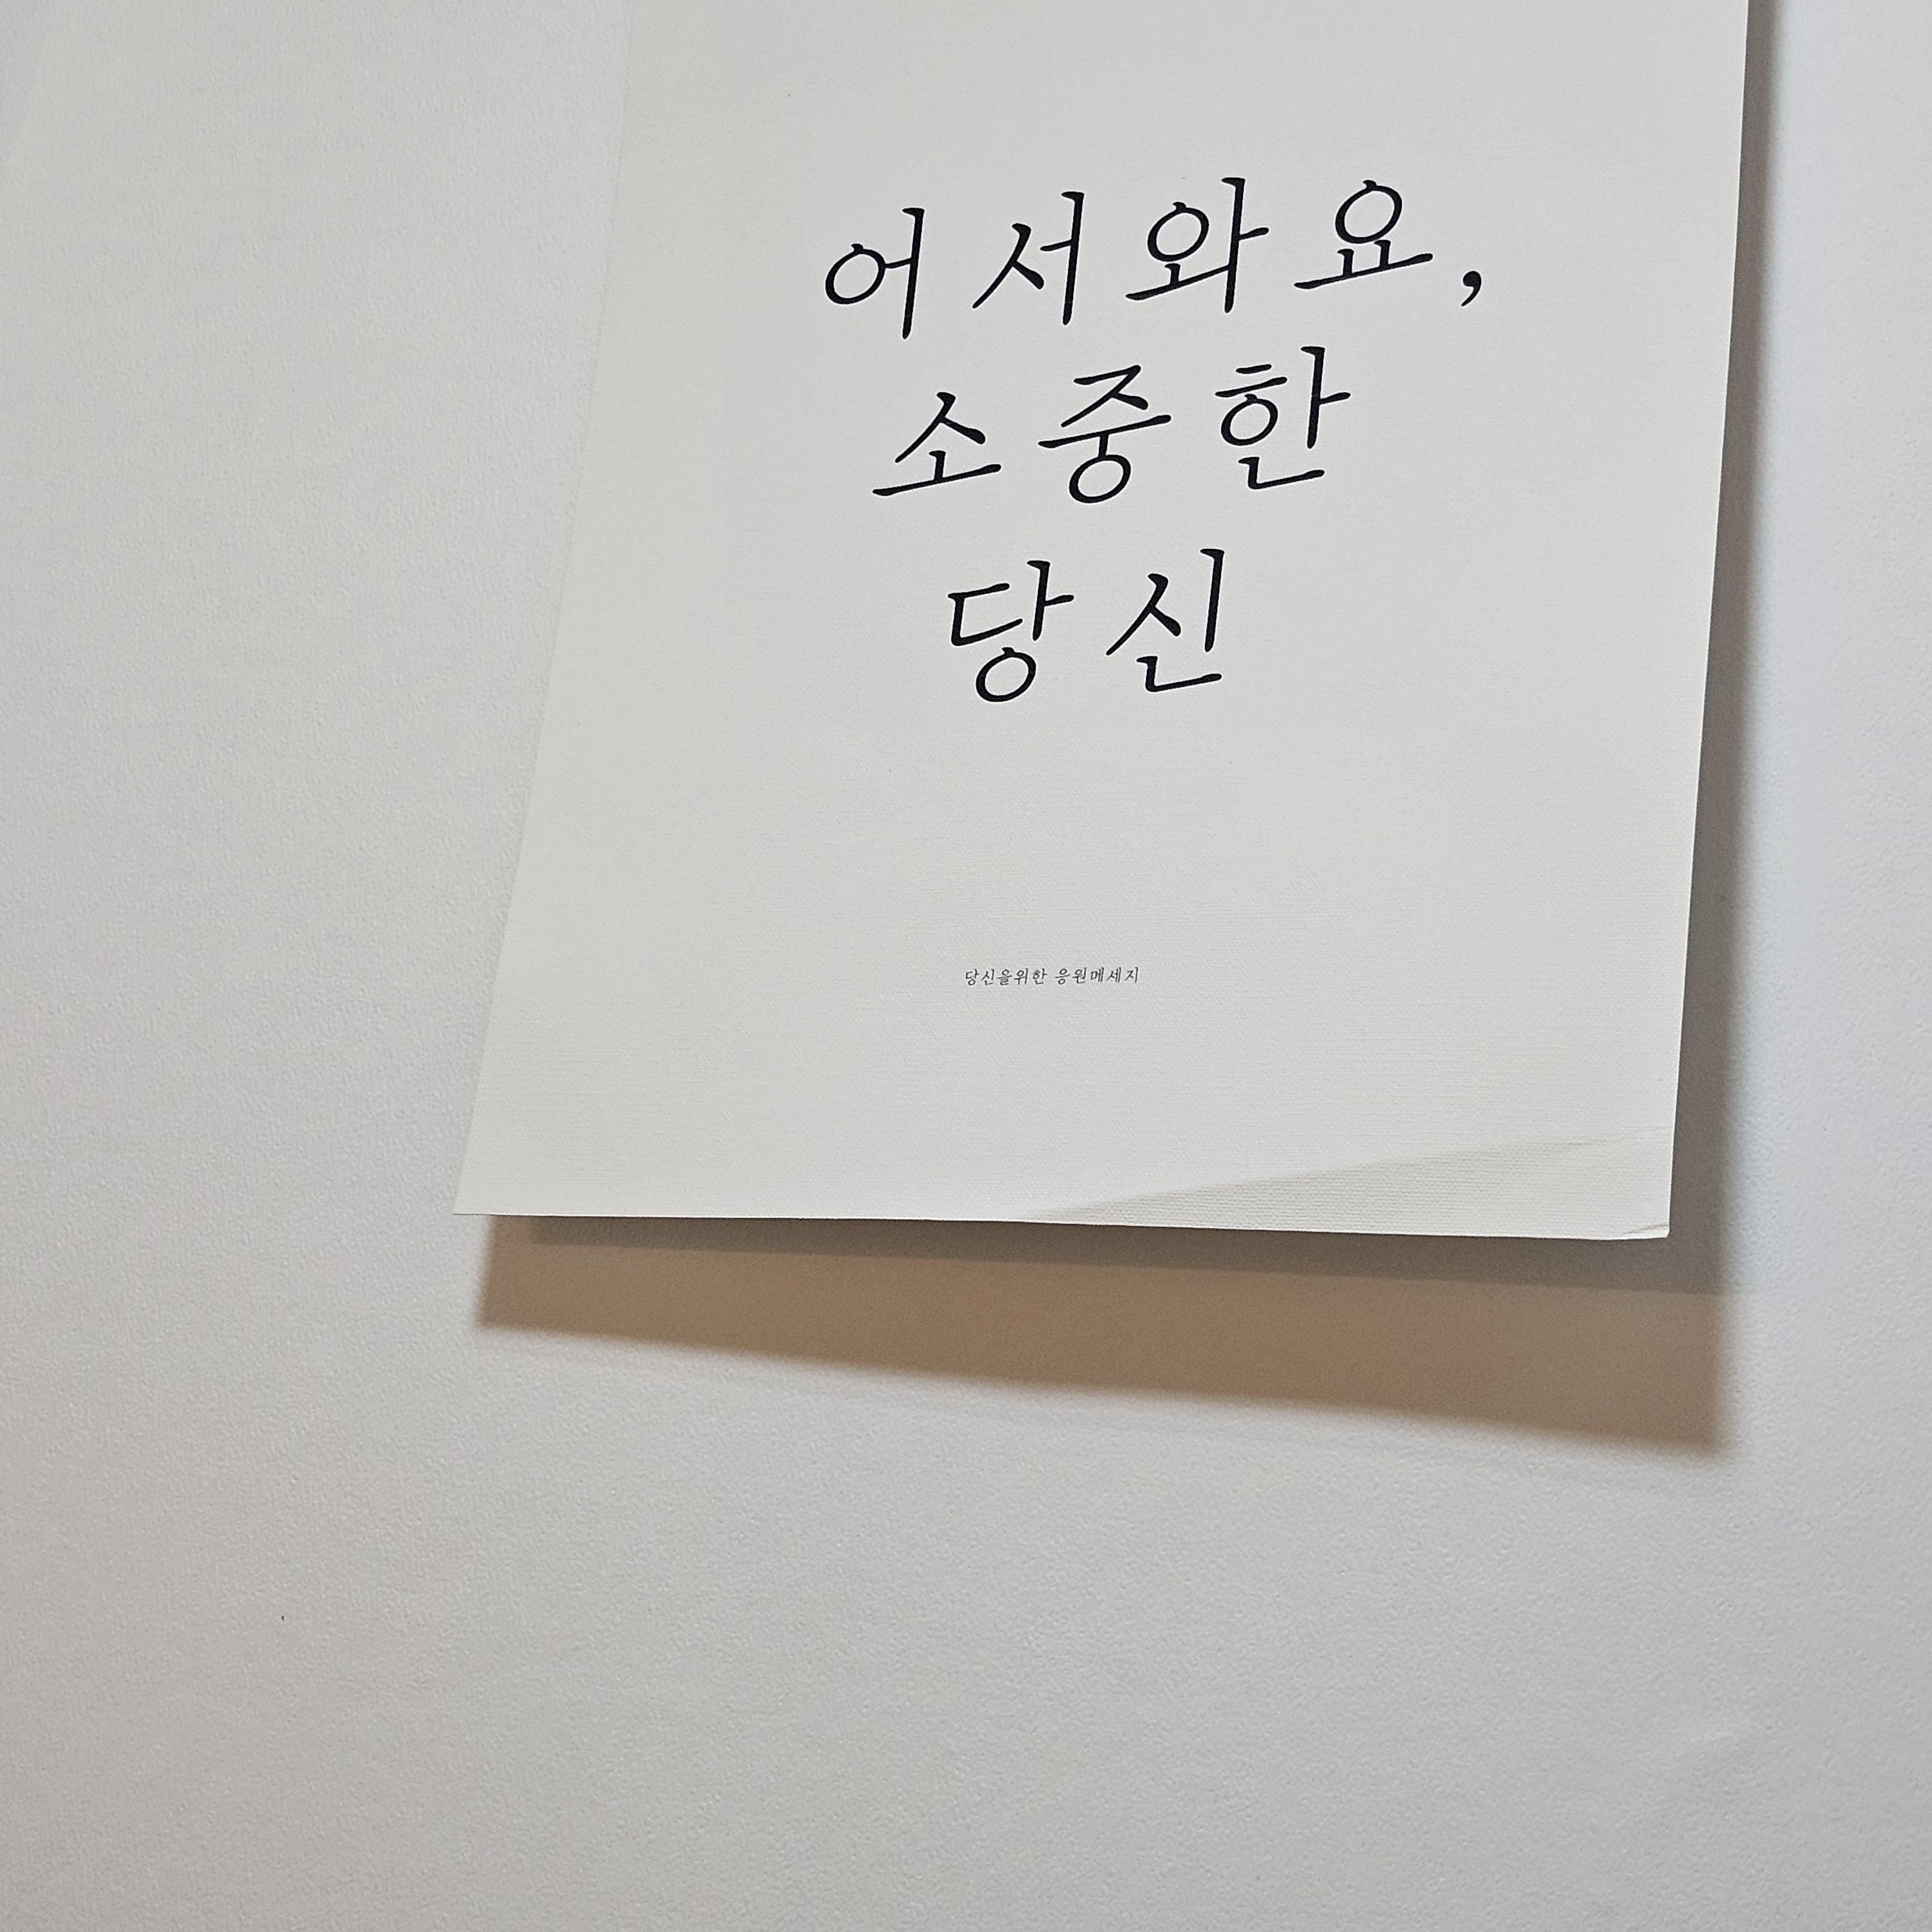 어서와요,
소중한
당신
당신을위한 응원메세지